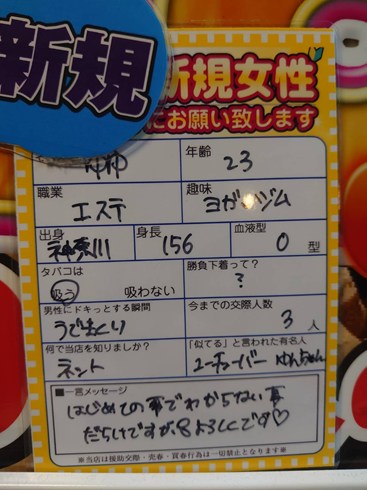 新規
新規女性
にお願い致します
ゆゆ
年齢
23
職業
エステ
趣味
ヨガ ジム
出身
神奈川
身長
156
血液型
O型
タバコは
吸う 吸わない
勝負下着って?
?
男性にドキっとする瞬間
うでまくり
今までの交際人数
3人
何で当店を知りましたか?
ネット
「似てる」と言われた有名人
ユーチューバー ゆんちゃん
■一言メッセージ
はじめての事でわからない事
だらけですが よろしくです♡
※当店は援助交際・売春・買春行為は一切禁止となります※